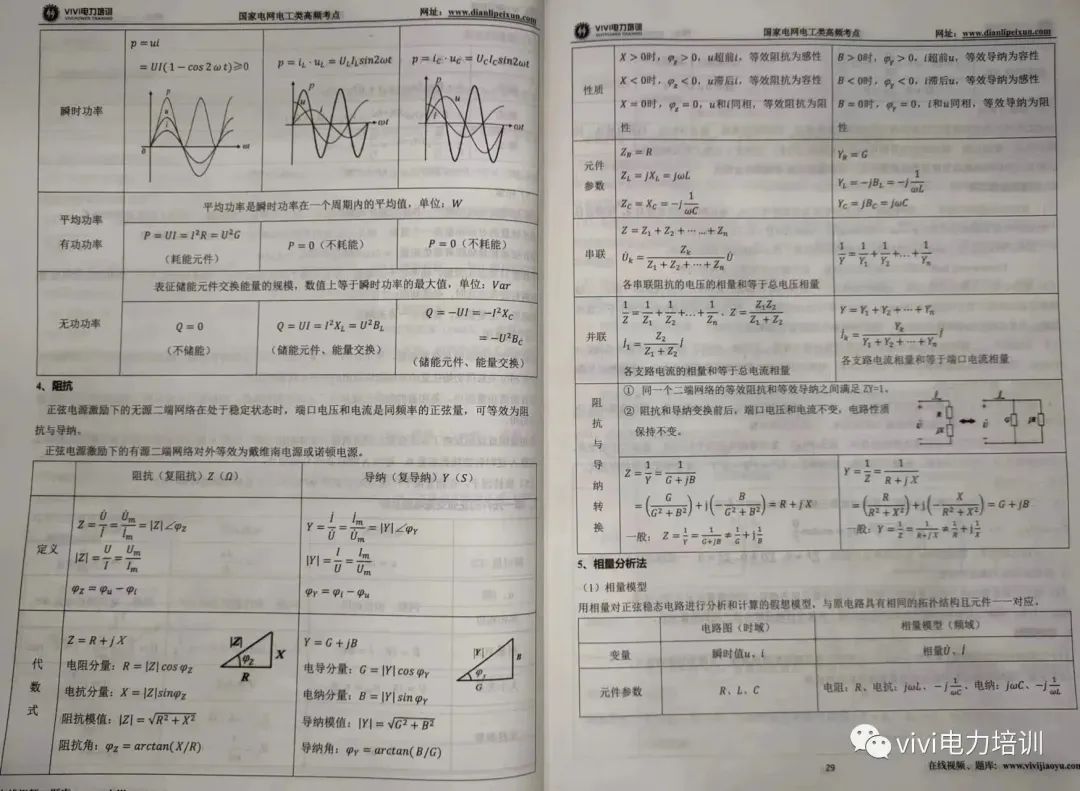 VIVI电力培训
国家电网电工类高频考点
网址：www.dianlipeixun.com
瞬时功率
p = ui
= UI(1 − cos2ωt)≥0
p = i_L · u_L = U_L I_L sin2ωt
p = i_C · u_C = U_C I_C sin2ωt
平均功率
有功功率
平均功率是瞬时功率在一个周期内的平均值，单位：W
P = UI = I²R = U²G
（耗能元件）
P = 0（不耗能）
P = 0（不耗能）
无功功率
表征储能元件交换能量的规模，数值上等于瞬时功率的最大值，单位：Var
Q = 0
（不储能）
Q = UI = I²X_L = U²B_L
（储能元件、能量交换）
Q = −UI = −I²X_C
= −U²B_C
（储能元件、能量交换）
4、阻抗
正弦电源激励下的无源二端网络在处于稳定状态时，端口电压和电流是同频率的正弦量，可等效为阻
抗与导纳。
正弦电源激励下的有源二端网络对外等效为戴维南电源或诺顿电源。
阻抗（复阻抗）Z（Ω）
导纳（复导纳）Y（S）
定义
Z = U̇/İ = U̇_m/İ_m = |Z|∠φ_Z
|Z| = U/I = U_m/I_m
φ_Z = φ_u − φ_i
Y = İ/U̇ = İ_m/U̇_m = |Y|∠φ_Y
|Y| = I/U = I_m/U_m
φ_Y = φ_i − φ_u
代
数
式
Z = R + j X
电阻分量：R = |Z| cos φ_Z
电抗分量：X = |Z|sinφ_Z
阻抗模值：|Z| = √(R² + X²)
阻抗角：φ_Z = arctan(X/R)
|Z|
φ_Z
X
R
Y = G + jB
电导分量：G = |Y| cos φ_Y
电纳分量：B = |Y| sin φ_Y
导纳模值：|Y| = √(G² + B²)
导纳角：φ_Y = arctan(B/G)
|Y|
φ_Y
B
G
VIVI电力培训
国家电网电工类高频考点
网址：www.dianlipeixun.com
性质
X > 0时，φ_Z > 0，u超前i，等效阻抗为感性
X < 0时，φ_Z < 0，u滞后i，等效阻抗为容性
X = 0时，φ_Z = 0，u和i同相，等效阻抗为阻
性
B > 0时，φ_Y > 0，i超前u，等效导纳为容性
B < 0时，φ_Y < 0，i滞后u，等效导纳为感性
B = 0时，φ_Y = 0，i和u同相，等效导纳为阻
性
元件
参数
Z_R = R
Z_L = jX_L = jωL
Z_C = X_C = −j 1/ωC
Y_R = G
Y_L = −jB_L = −j 1/ωL
Y_C = jB_C = jωC
串联
Z = Z₁ + Z₂ + … … + Z_n
U̇_k = Z_k/(Z₁ + Z₂ + ⋯ + Z_n) U̇
各串联阻抗的电压的相量和等于总电压相量
1/Y = 1/Y₁ + 1/Y₂ + … + 1/Y_n
并联
1/Z = 1/Z₁ + 1/Z₂ + … + 1/Z_n、Z = Z₁Z₂/(Z₁ + Z₂)
İ₁ = Z₂/(Z₁ + Z₂) İ
各支路电流的相量和等于总电流相量
Y = Y₁ + Y₂ + ⋯ + Y_n
İ_k = Y_k/(Y₁ + Y₂ + ⋯ + Y_n) İ
各支路电流相量和等于端口电流相量
阻
抗
与
导
纳
转
换
① 同一个二端网络的等效阻抗和等效导纳之间满足 ZY=1。
② 阻抗和导纳变换前后，端口电压和电流不变，电路性质
保持不变。
Z = 1/Y = 1/(G + jB)
= (G/(G² + B²)) + j(−B/(G² + B²)) = R + j X
一般：Z = 1/Y = 1/(G+jB) ≠ 1/G + j 1/B
Y = 1/Z = 1/(R + j X)
= (R/(R² + X²)) + j(−X/(R² + X²)) = G + jB
一般：Y = 1/Z = 1/(R+j X) ≠ 1/R + j 1/X
5、相量分析法
（1）相量模型
用相量对正弦稳态电路进行分析和计算的假想模型，与原电路具有相同的拓扑结构且元件一一对应。
电路图（时域）
相量模型（频域）
变量
瞬时值u、i
相量U̇、İ
元件参数
R、L、C
电阻：R、电抗：jωL、−j 1/ωC、电纳：jωC、−j 1/ωL
vivi电力培训
29
在线视频、题库：www.vivijiaoyu.com